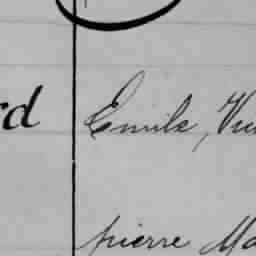 rd Emile, Vi
pierre Ma